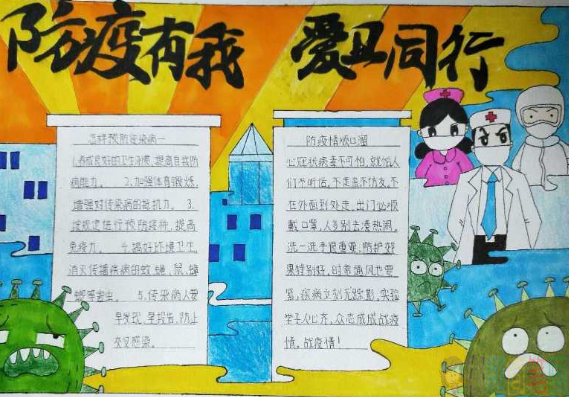 防疫有我 爱卫同行
怎样预防传染病一
1.养成良好的卫生习惯,提高自我防
病能力。 2.加强体育锻炼,
增强对传染病的抵抗力。 3.
按规定进行预防接种,提高
免疫力。 4.搞好环境卫生,
消灭传播疾病的蚊、蝇、鼠、蟑
螂等害虫。 5.传染病人要
早发现,早报告,防止
交叉感染。
防疫情顺口溜
心冠状病毒不可怕,就怕人
们不听话,不走亲不访友,不
在外面到处走,出门必须
戴口罩,人多别去凑热闹,
洗一洗手很重要,防护效
果特别好,时常通风也要
紧,疾病立刻无踪影,实验
学子人心齐,众志成城战疫
情,战疫情!